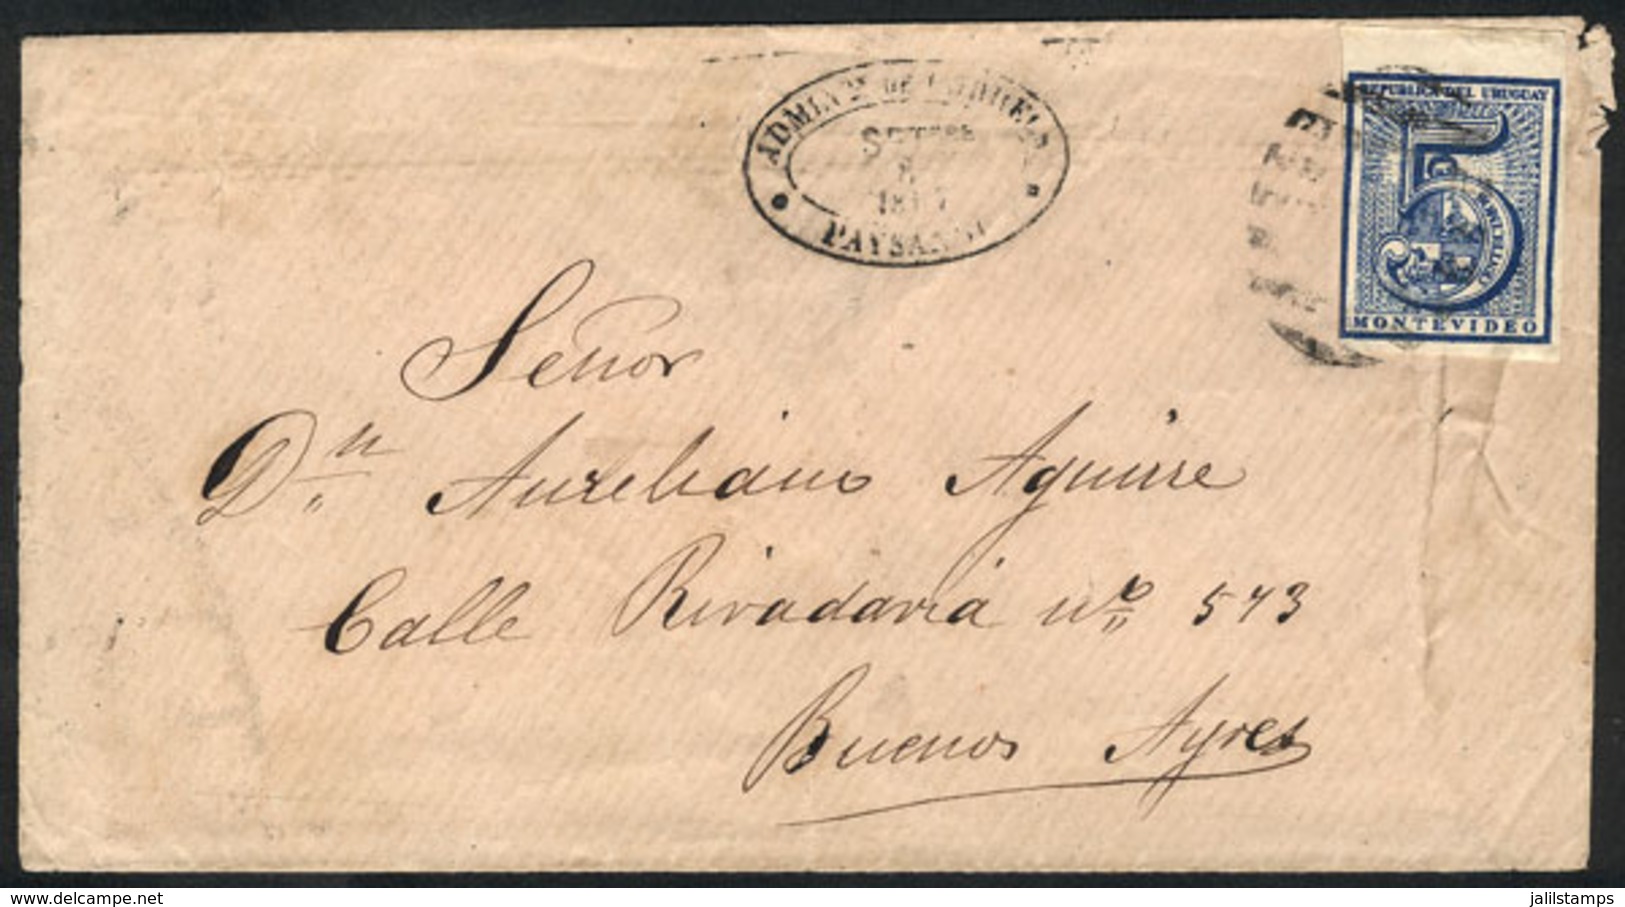 ADMINᵒⁿ DE CORREOS
SETBRE
PAYSANDU
REPUBLICA DEL URUGUAY
5
MONTEVIDEO
Señor
Dⁿ Aureliano Aguirre
Calle Rivadavia nº 573
Buenos Ayres
jalilstamps
delcampe.net